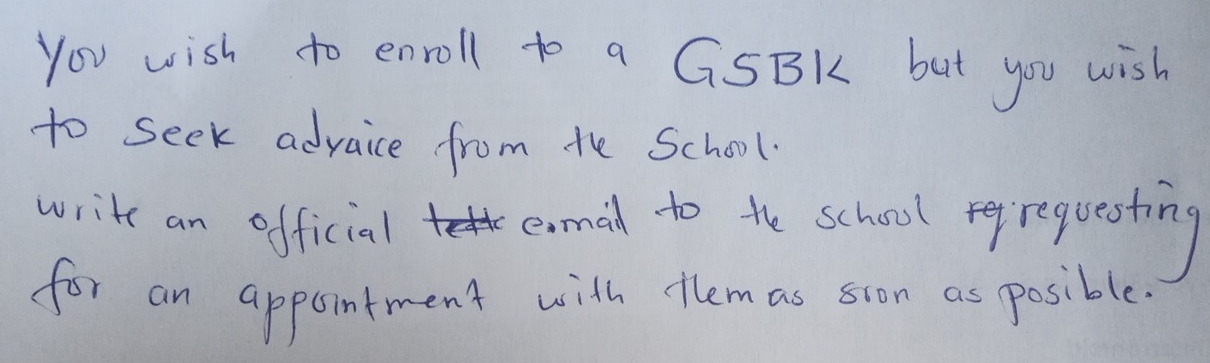 You wish to enroll to a GSBK but you wish
to seek advaice from the School.
write an official e.mail to the school requesting
for an appointment with them as soon as posible.